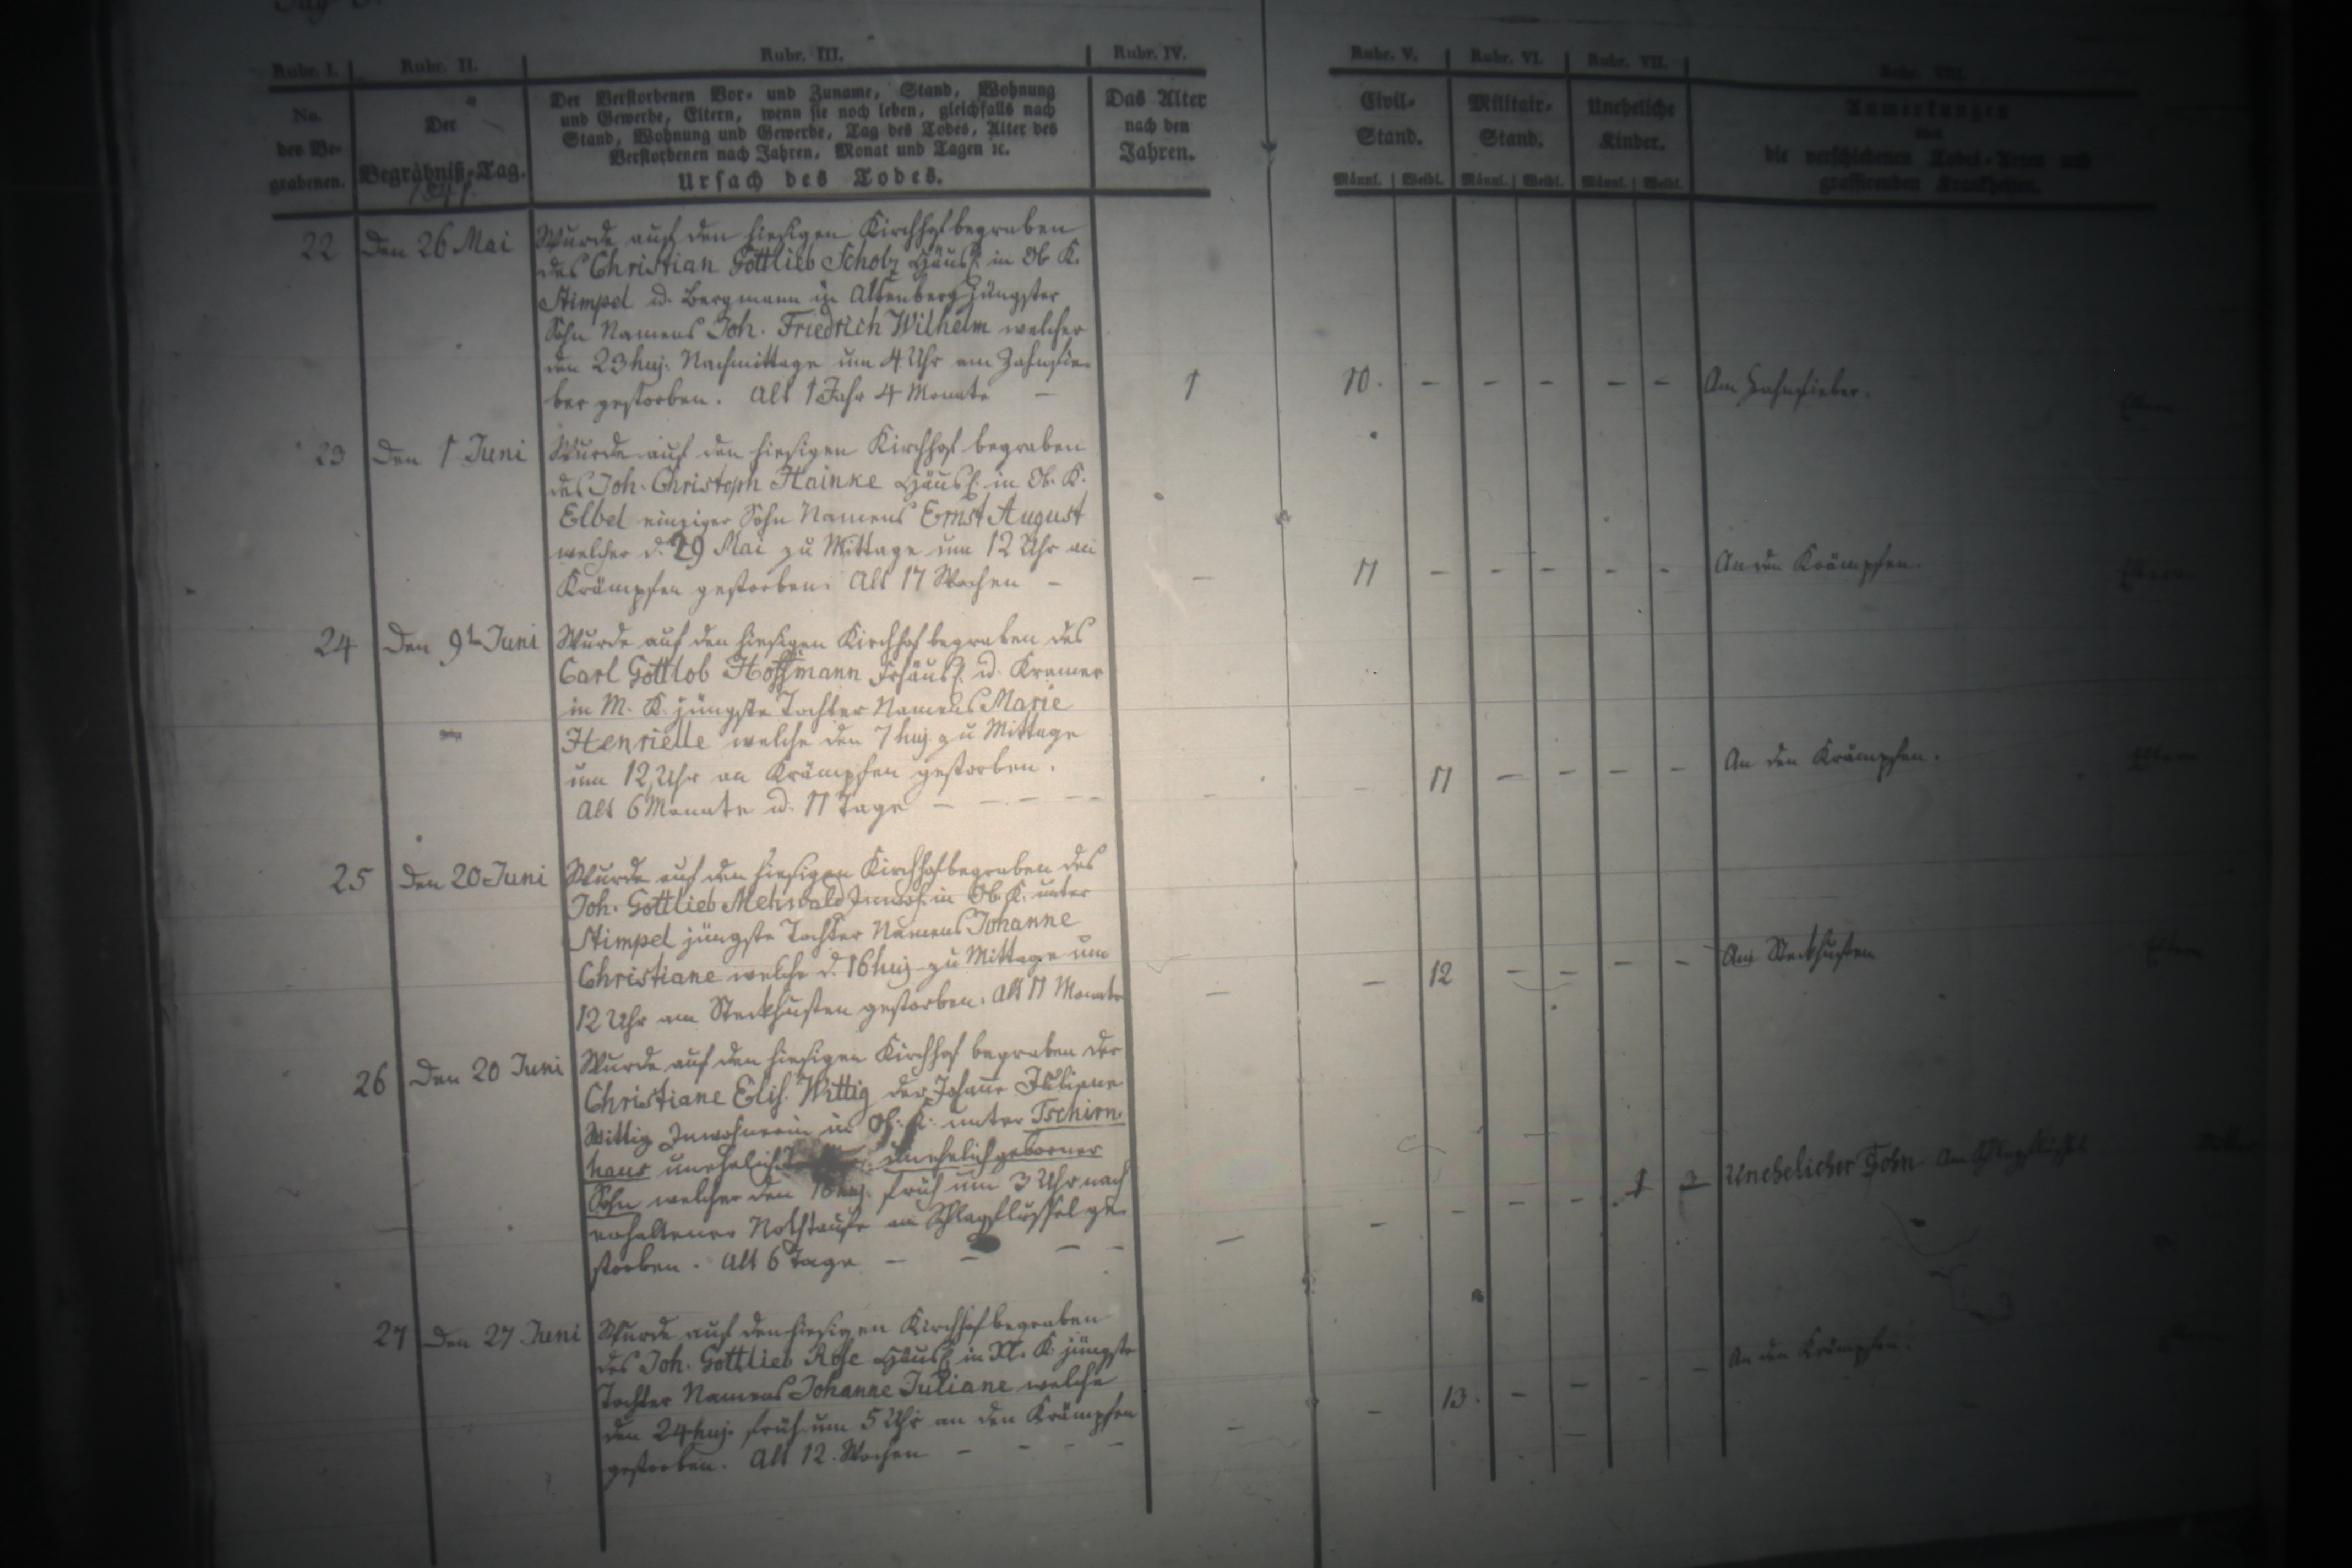 Rubr. I. Rubr. II. Rubr. III. Rubr. IV. Rubr. V. Rubr. VI. Rubr. VII. Rubr. VIII.
No. der Be-grabenen.
Der Begräbniß-Tag.
1841.
Der Verstorbenen Vor- und Zuname, Stand, Wohnung
und Gewerbe, Eltern, wenn sie noch leben, gleichfalls nach
Stand, Wohnung und Gewerbe, Tag des Todes, Alter des
Verstorbenen nach Jahren, Monat und Tagen ꝛc.
Ursach des Todes.
Das Alter
nach den
Jahren.
Civil-
Stand.
Militair-
Stand.
Uneheliche
Kinder.
Anmerkungen
über
die verschiedenen Todes-Arten und
grassirenden Krankheiten.
Männl. Weibl. Männl. Weibl. Männl. Weibl.
22 Den 26 Mai
Wurde auf den hiesigen Kirchhof begraben
des Christian Gottlieb Scholz Häusl. in Ob. K.
Stimpel u. Bergmann in Altenberg jüngster
Sohn Namens Joh. Friedrich Wilhelm welcher
den 23 huj. Nachmittage um 4 Uhr am Zahnfie-
ber gestorben. Alt 1 Jahr 4 Monate –
1 10. – – – – – Am Zahnfieber.
23 Den 1 Juni
Wurde auf den hiesigen Kirchhof begraben
des Joh. Christoph Hainke Häusl. in Ob. K.
Elbel einziger Sohn Namens Ernst August
welcher d. 29 Mai zu Mittage um 12 Uhr an
Krämpfen gestorben. Alt 17 Wochen –
– 11 – – – – – An den Krämpfen.
24 Den 9t Juni
Wurde auf den hiesigen Kirchhof begraben des
Carl Gottlob Hoffmann Frhäusl. u. Kramer
in M. K. jüngste Tochter Namens Marie
Henrielle welche den 7 huj. zu Mittage
um 12 Uhr an Krämpfen gestorben.
Alt 6 Monate u. 11 Tage – – – – –
– – 11 – – – – An den Krämpfen.
25 Den 20 Juni
Wurde auf den hiesigen Kirchhof begraben des
Joh. Gottlieb Mehwald Inwoh. in Ob. K. unter
Stimpel jüngste Tochter Namens Johanne
Christiane welche d. 16 huj. zu Mittage um
12 Uhr am Steckhusten gestorben. Alt 11 Monate
– – 12 – – – – Am Steckhusten
26 Den 20 Juni
Wurde auf den hiesigen Kirchhof begraben der
Christiane Elis. Wittig der Johane Juliane
Wittig Inwohnerin in Ob. K. unter Tschirn-
haus unehelich unehelich geborner
Sohn welcher den 16 huj. früh um 3 Uhr nach
erhaltener Nothtaufe am Schlagflussel ge-
storben. Alt 6 Tage – – – –
– – – – – 1 Unehelicher Sohn. Am Schlagflussel
27 Den 27 Juni
Wurde auf den hiesigen Kirchhof begraben
des Joh. Gottlieb Rose Häusl. in N. K. jüngste
Tochter Namens Johanne Juliane welche
den 24 huj. früh um 5 Uhr an den Krämpfen
gestorben. Alt 12 Wochen – – – –
– – 13. – – – – An den Krämpfen.